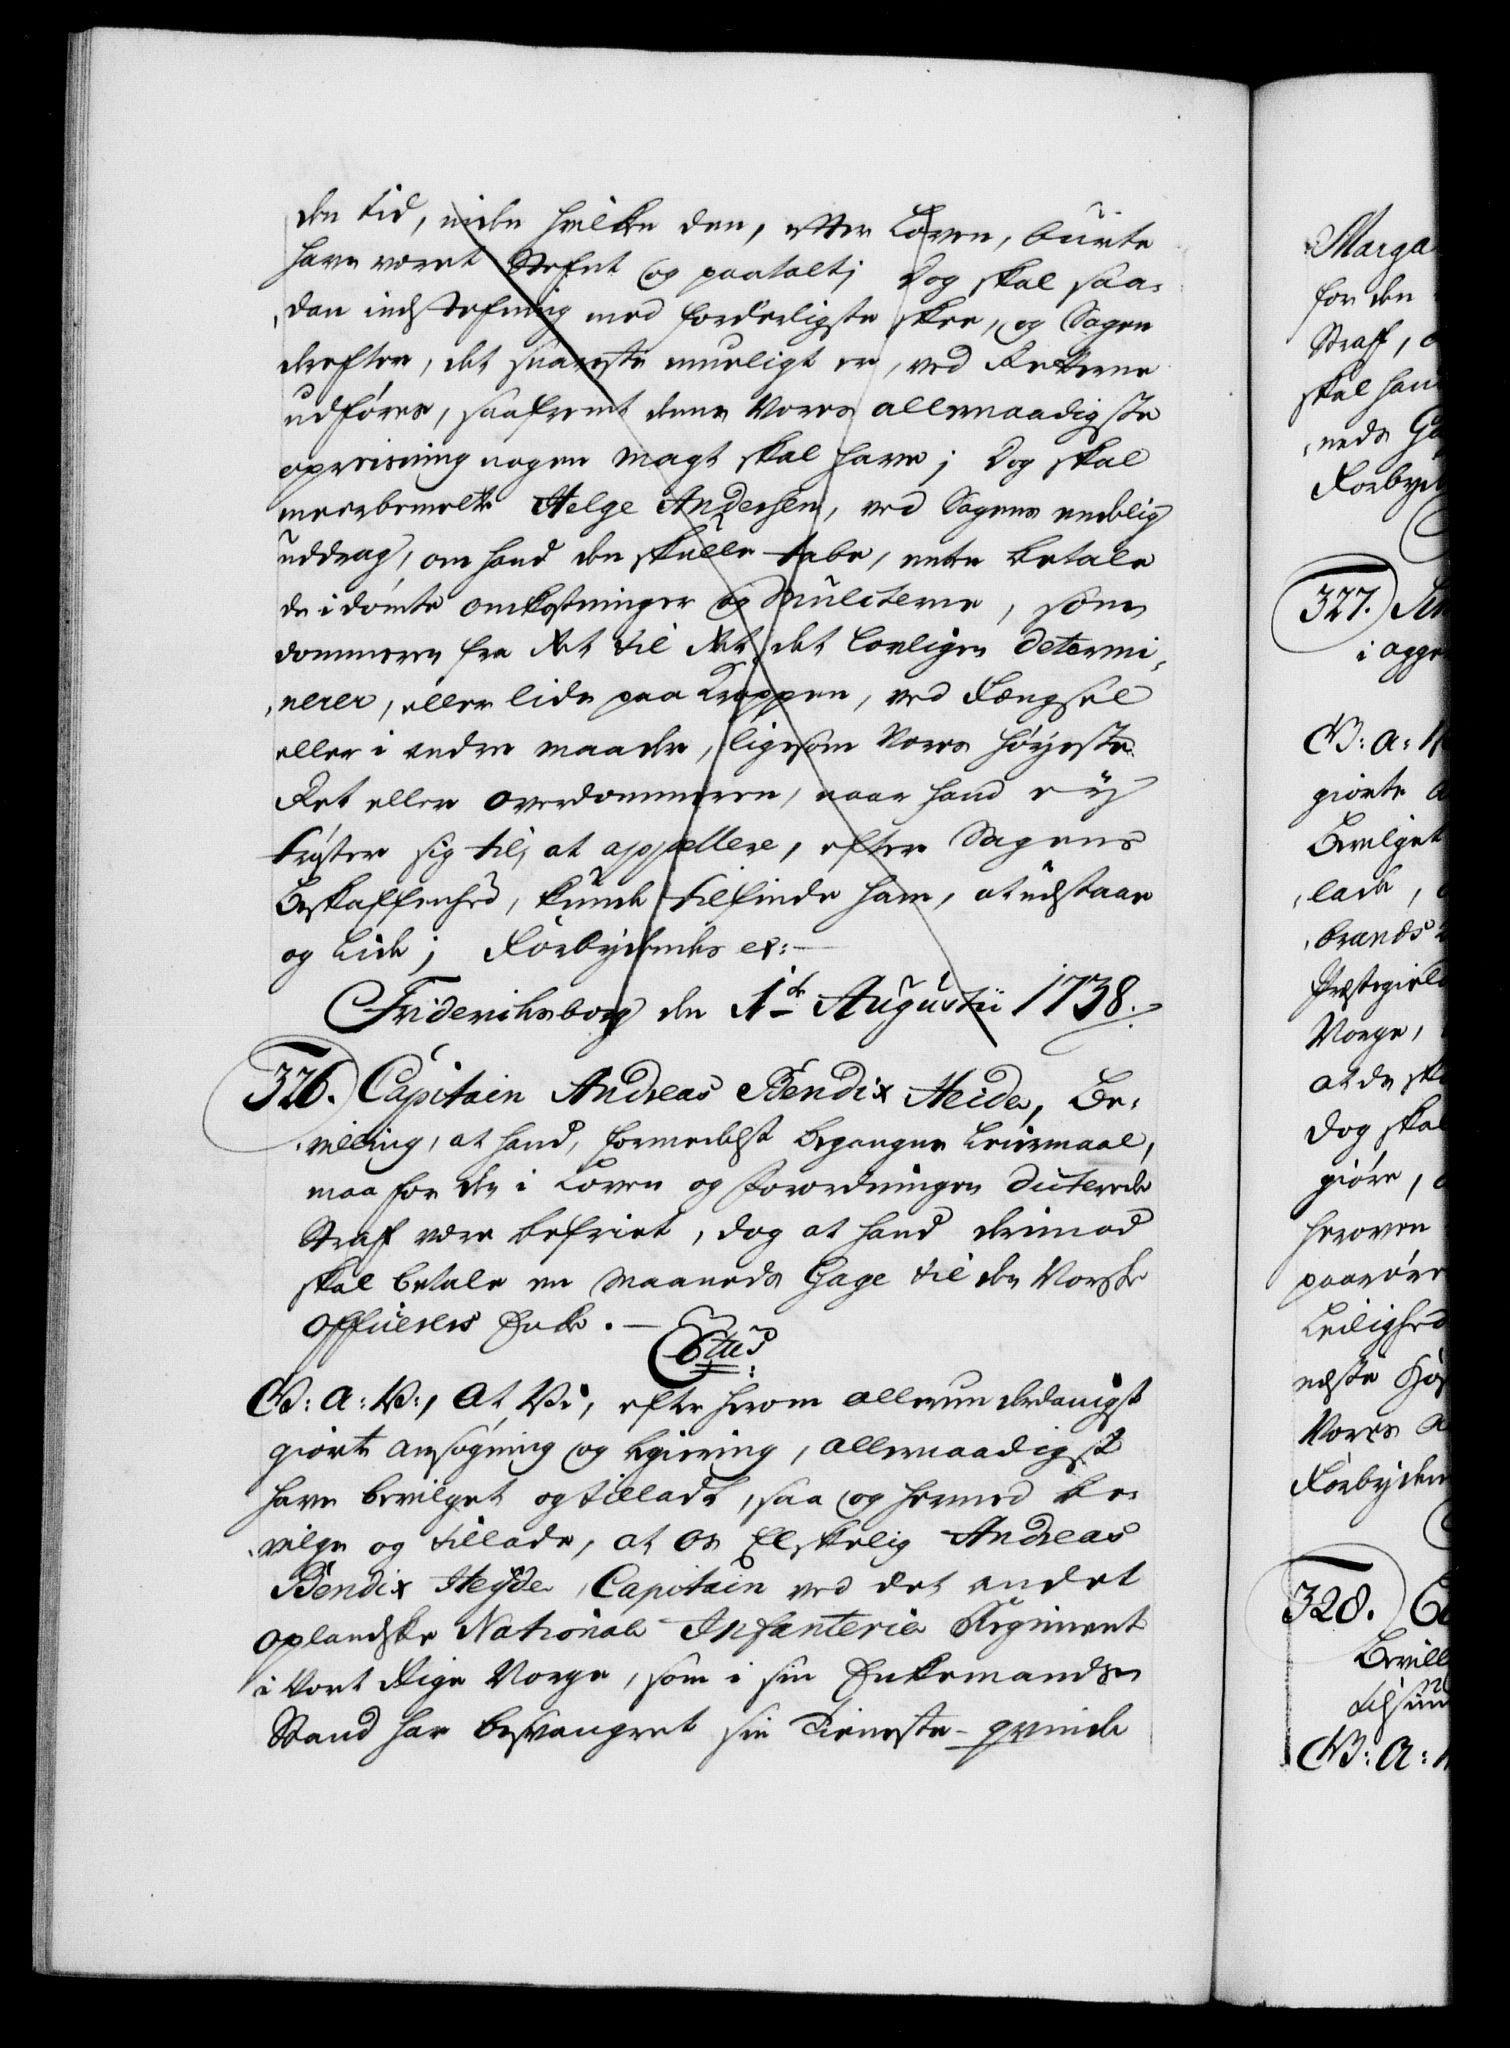 den tid, inden hvilken den, efter Loven, burte
have været Stefnt og paatalt; Dog skal saa-
dan indstefning med forderligste skee, og Sagen
derefter, det snareste mueligt er, ved Retterne
udføres, saafremt denne Vores allernaadigste
opreisning nogen magt skal have; Dog skal
meerbemelte Helge Andersen, ved Sagens endelig
uddrag, om hand den skulle tabe, enten betale
de idømte omkostninger og Mulcterne, som
dommeren fra Ret til Ret det lovligen determi-
nerer, eller lide paa Kroppen, ved Fængsel
eller i andre maader, ligesom Vores Høyeste
Ret eller overdommeren, naar hand ey
trøster sig til, at appellere, efter Sagens
Beskaffenhed, kunde tilfinde ham, at udstaae
og Lide; Forbydendes etc:
Friderichsborg den 1te Augustii 1738.
326. Capitain Andreas Bendix Heide, Be-
villing, at hand, formedelst begangne Leiermaal,
maa for den i Loven og Forordningen dicterede
Straf være befriet, dog at hand derimod
skal betale en Maaneds Gage til den Norske
Officeers Enke.
Ctus
G: A: V:, At Vi, efter herom allerunderdanigst
giorte ansøgning og begiering, allernaadigst
have bevilget og tilladt, saa og hermed be-
vilge og tillade, at os Elskelig Andreas
Bendix Heyde, Capitain ved det andet
oplandske Nationale Infanterie Regiment
i Vort Rige Norge, som i sin Enkemands
Stand har besvangret sin Tieneste-qvinde
Marga
for den
Straf, 
skal han
neds Ga
Forbyd
327.
i agge
G: A: V
giorte
Bevilget
lade,
brands
Præstegield
Norge,
at de sk
Dog skal
giøre,
herover
paarøre
Leilighed
næste
Vores
Forbyden
328.
Bevill
G: A: V